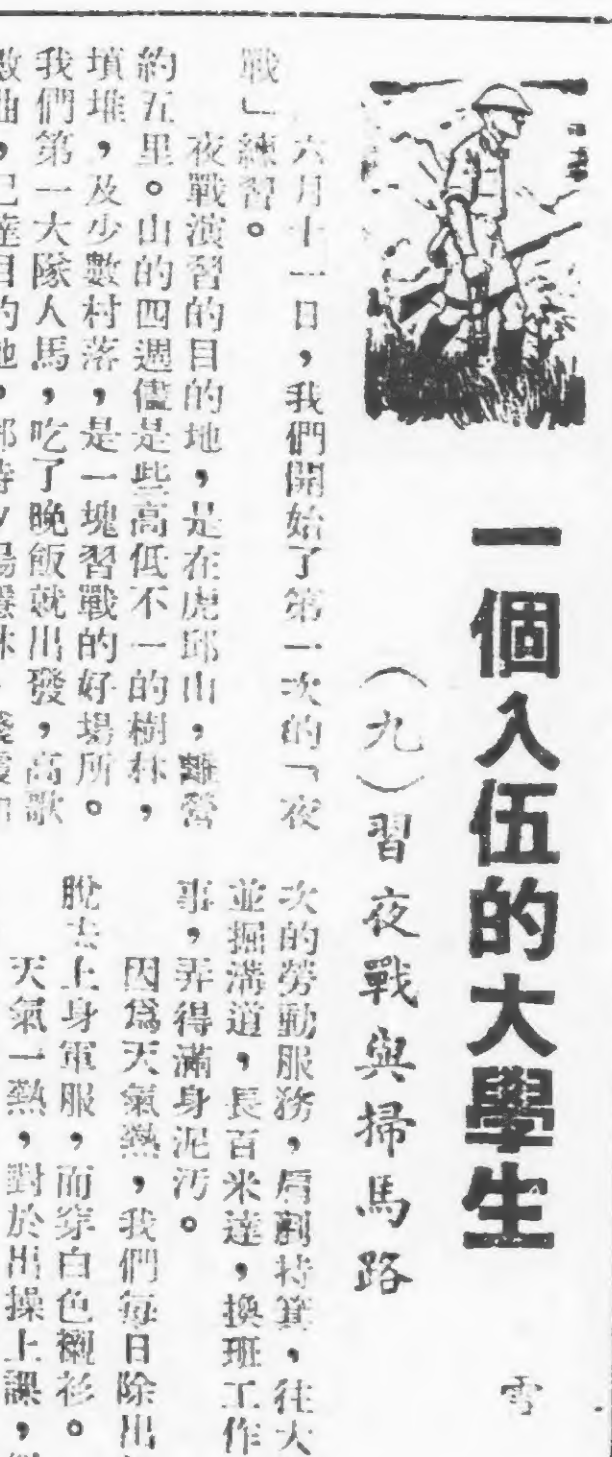 一個入伍的大學生
雪
（九）習夜戰與掃馬路
六月十一日，我們開始了第一次的「夜
戰」練習。
夜戰演習的目的地，是在虎邱山，離營
約五里。山的四週儘是些高低不一的樹林，
墳堆，及少數村落，是一塊習戰的好場所。
我們第一大隊人馬，吃了晚飯就出發，高歌
數曲，已達目的地，那時夕陽
次的勞動服務，肩荷持箕，往大
並掘溝道，長百米達，換班工作
事，弄得滿身泥汚。
因爲天氣熱，我們每日除出
脫去上身軍服，而穿白色襯衫。
天氣一熱，對於出操上課，